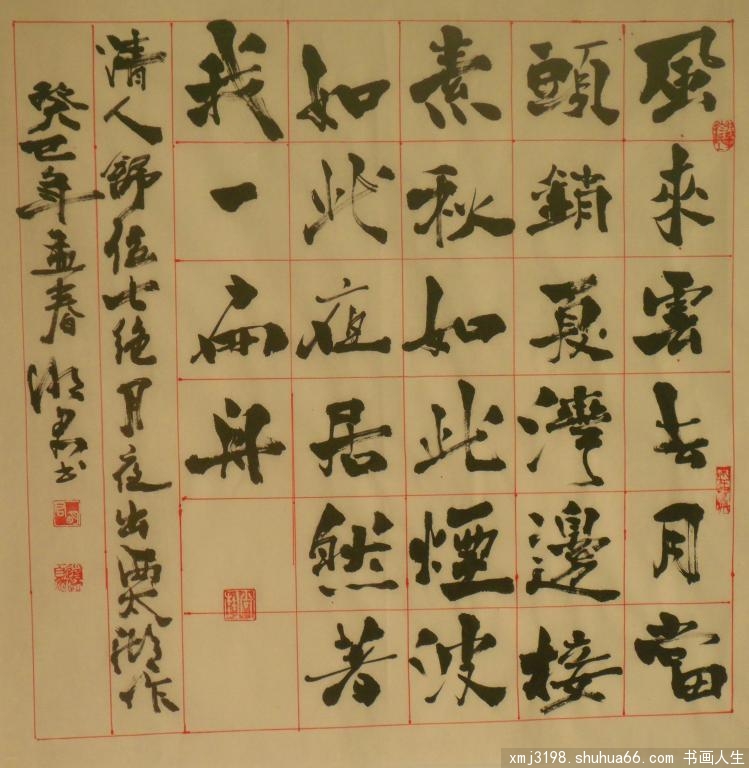 風來雲去月當
頭銷夏灣邊接
素秋如此煙波
如此夜居然著
我一扁舟
清人舒位七绝月夜出西太湖作
癸巳年孟春 书
xmj3198.shuhua66.com 书画人生